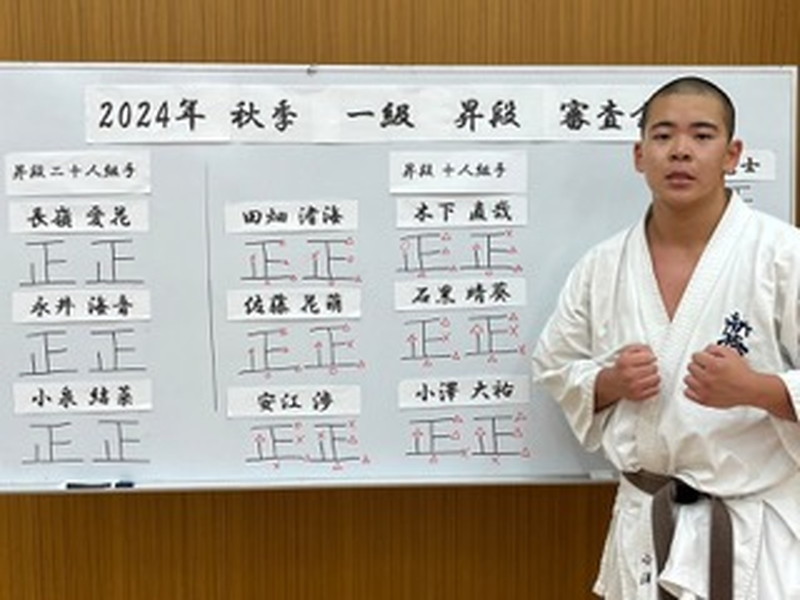 2024年 秋季 一級 昇段 審査
昇段二十人組手
長嶺 愛花
正 正
永井 海音
正 正
小泉 結菜
正 正
田畑 渚海
正 正
佐藤 花萌
正 正
安江 渉
正 正
昇段 十人組手
木下 直哉
正 正
石黒 晴葵
正 正
小澤 大祐
正 正
士